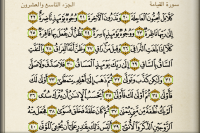 سورة القيامة الجزء التاسع والعشرون
كَلَّا بَلْ تُحِبُّونَ الْعَاجِلَةَ ٢٠ وَتَذَرُونَ الْآخِرَةَ ٢١ وُجُوهٌ يَوْمَئِذٍ نَاضِرَةٌ ٢٢
إِلَى رَبِّهَا نَاظِرَةٌ ٢٣ وَوُجُوهٌ يَوْمَئِذٍ بَاسِرَةٌ ٢٤ تَظُنُّ أَنْ يُفْعَلَ بِهَا
فَاقِرَةٌ ٢٥ كَلَّا إِذَا بَلَغَتِ التَّرَاقِيَ ٢٦ وَقِيلَ مَنْ رَاقٍ ٢٧ وَظَنَّ أَنَّهُ الْفِرَاقُ
٢٨ وَالْتَفَّتِ السَّاقُ بِالسَّاقِ ٢٩ إِلَى رَبِّكَ يَوْمَئِذٍ الْمَسَاقُ ٣٠ فَلَا صَدَّقَ وَلَا صَلَّى
٣١ وَلَكِنْ كَذَّبَ وَتَوَلَّى ٣٢ ثُمَّ ذَهَبَ إِلَى أَهْلِهِ يَتَمَطَّى ٣٣ أَوْلَى لَكَ فَأَوْلَى
٣٤ ثُمَّ أَوْلَى لَكَ فَأَوْلَى ٣٥ أَيَحْسَبُ الْإِنْسَانُ أَنْ يُتْرَكَ سُدًى ٣٦ أَلَمْ يَكُ
نُطْفَةً مِنْ مَنِيٍّ يُمْنَى ٣٧ ثُمَّ كَانَ عَلَقَةً فَخَلَقَ فَسَوَّى ٣٨ فَجَعَلَ مِنْهُ
الزَّوْجَيْنِ الذَّكَرَ وَالْأُنْثَى ٣٩ أَلَيْسَ ذَلِكَ بِقَادِرٍ عَلَى أَنْ يُحْيِيَ الْمَوْتَى ٤٠